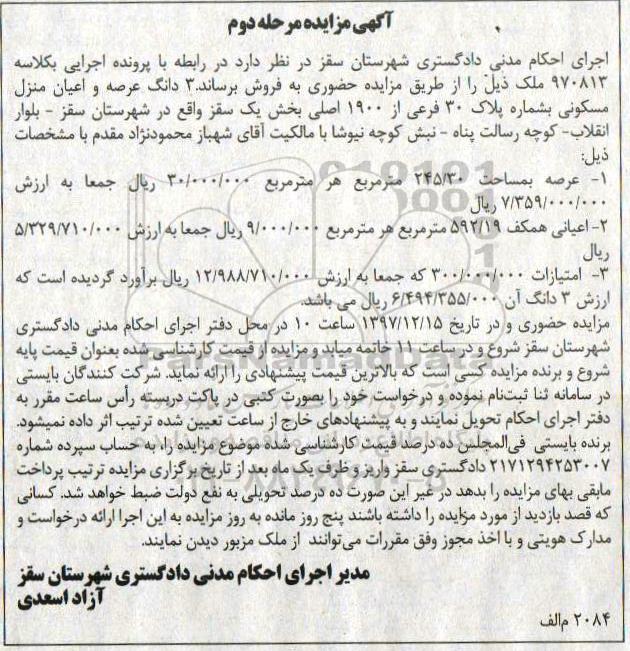 آگهی مزایده مرحله دوم
اجرای احکام مدنی دادگستری شهرستان سقز در نظر دارد در رابطه با پرونده اجرایی بکلاسه
۹۷۰۸۱۳ ملک ذیل را از طریق مزایده حضوری به فروش برساند.۳ دانگ عرصه و اعیان منزل
مسکونی بشماره پلاک ۳۰ فرعی از ۱۹۰۰ اصلی بخش یک سقز واقع در شهرستان سقز - بلوار
انقلاب- کوچه رسالت پناه - نبش کوچه نیوشا با مالکیت آقای شهباز محمودنژاد مقدم با مشخصات
ذیل:
۱- عرصه بمساحت ۲۴۵/۳۰ مترمربع هر مترمربع ۳۰/۰۰۰/۰۰۰ ریال جمعا به ارزش
۷/۳۵۹/۰۰۰/۰۰۰ ریال
۲-اعیانی همکف ۵۹۲/۱۹ مترمربع هر مترمربع ۹/۰۰۰/۰۰۰ ریال جمعا به ارزش ۵/۳۲۹/۷۱۰/۰۰۰
ریال
۳- امتیازات ۳۰۰/۰۰۰/۰۰۰ که جمعا به ارزش ۱۲/۹۸۸/۷۱۰/۰۰۰ ریال برآورد گردیده است که
ارزش ۳ دانگ آن ۶/۴۹۴/۳۵۵/۰۰۰ ریال می باشد.
مزایده حضوری و در تاریخ ۱۳۹۷/۱۲/۱۵ ساعت ۱۰ در محل دفتر اجرای احکام مدنی دادگستری
شهرستان سقز شروع و در ساعت ۱۱ خاتمه میابد و مزایده از قیمت کارشناسی شده بعنوان قیمت پایه
شروع و برنده مزایده کسی است که بالاترین قیمت پیشنهادی را ارائه نماید. شرکت کنندگان بایستی
در سامانه ثنا ثبت‌نام نموده و درخواست خود را بصورت کتبی در پاکت دربسته رأس ساعت مقرر به
دفتر اجرای احکام تحویل نمایند و به پیشنهادهای خارج از ساعت تعیین شده ترتیب اثر داده نمیشود.
برنده بایستی فی‌المجلس ده درصد قیمت کارشناسی شده موضوع مزایده را، به حساب سپرده شماره
۲۱۷۱۲۹۴۲۵۳۰۰۷ دادگستری سقز واریز و ظرف یک ماه بعد از تاریخ برگزاری مزایده ترتیب پرداخت
مابقی بهای مزایده را بدهد در غیر این صورت ده درصد تحویلی به نفع دولت ضبط خواهد شد. کسانی
که قصد بازدید از مورد مزایده را داشته باشند پنج روز مانده به روز مزایده به این اجرا ارائه درخواست و
مدارک هویتی و با اخذ مجوز وفق مقررات می‌توانند از ملک مزبور دیدن نمایند.
مدیر اجرای احکام مدنی دادگستری شهرستان سقز
آزاد اسعدی
۲۰۸۴ م‌الف